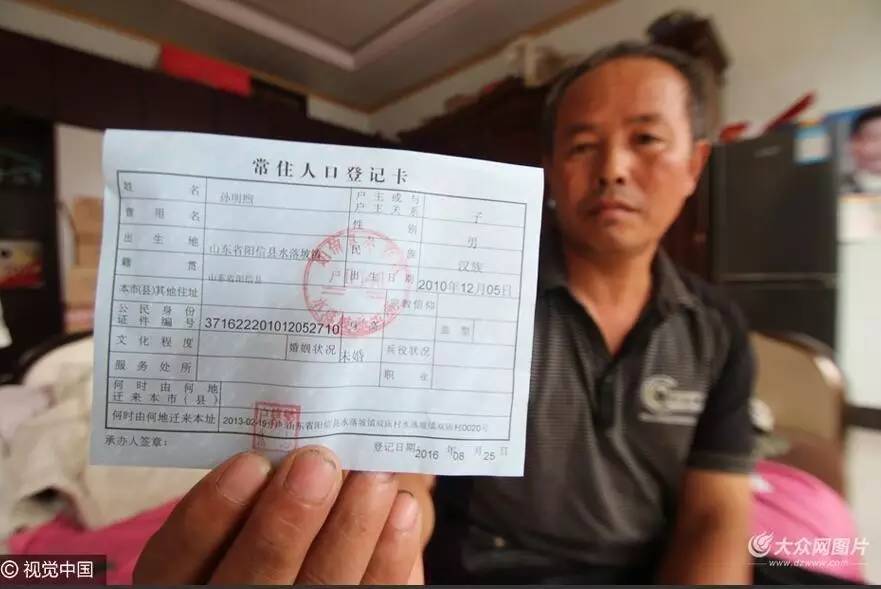 常住人口登记卡
姓名 孙明煦 户主或与户主关系 子
曾用名 性别 男
出生地 山东省阳信县水落坡镇 民族 汉族
籍贯 山东省阳信县 出生日期 2010年12月05日
本市(县)其他住址 宗教信仰
公民身份证件编号 371622201012052710 身高 血型
文化程度 婚姻状况 未婚 兵役状况
服务处所 职业
何时由何地迁来本市(县)
何时由何地迁来本址 2013-02-19 山东省阳信县水落坡镇双庙村水落坡镇双庙村0020号
承办人签章: 登记日期: 2016年08月25日
大众网图片
www.dzwww.com
©视觉中国